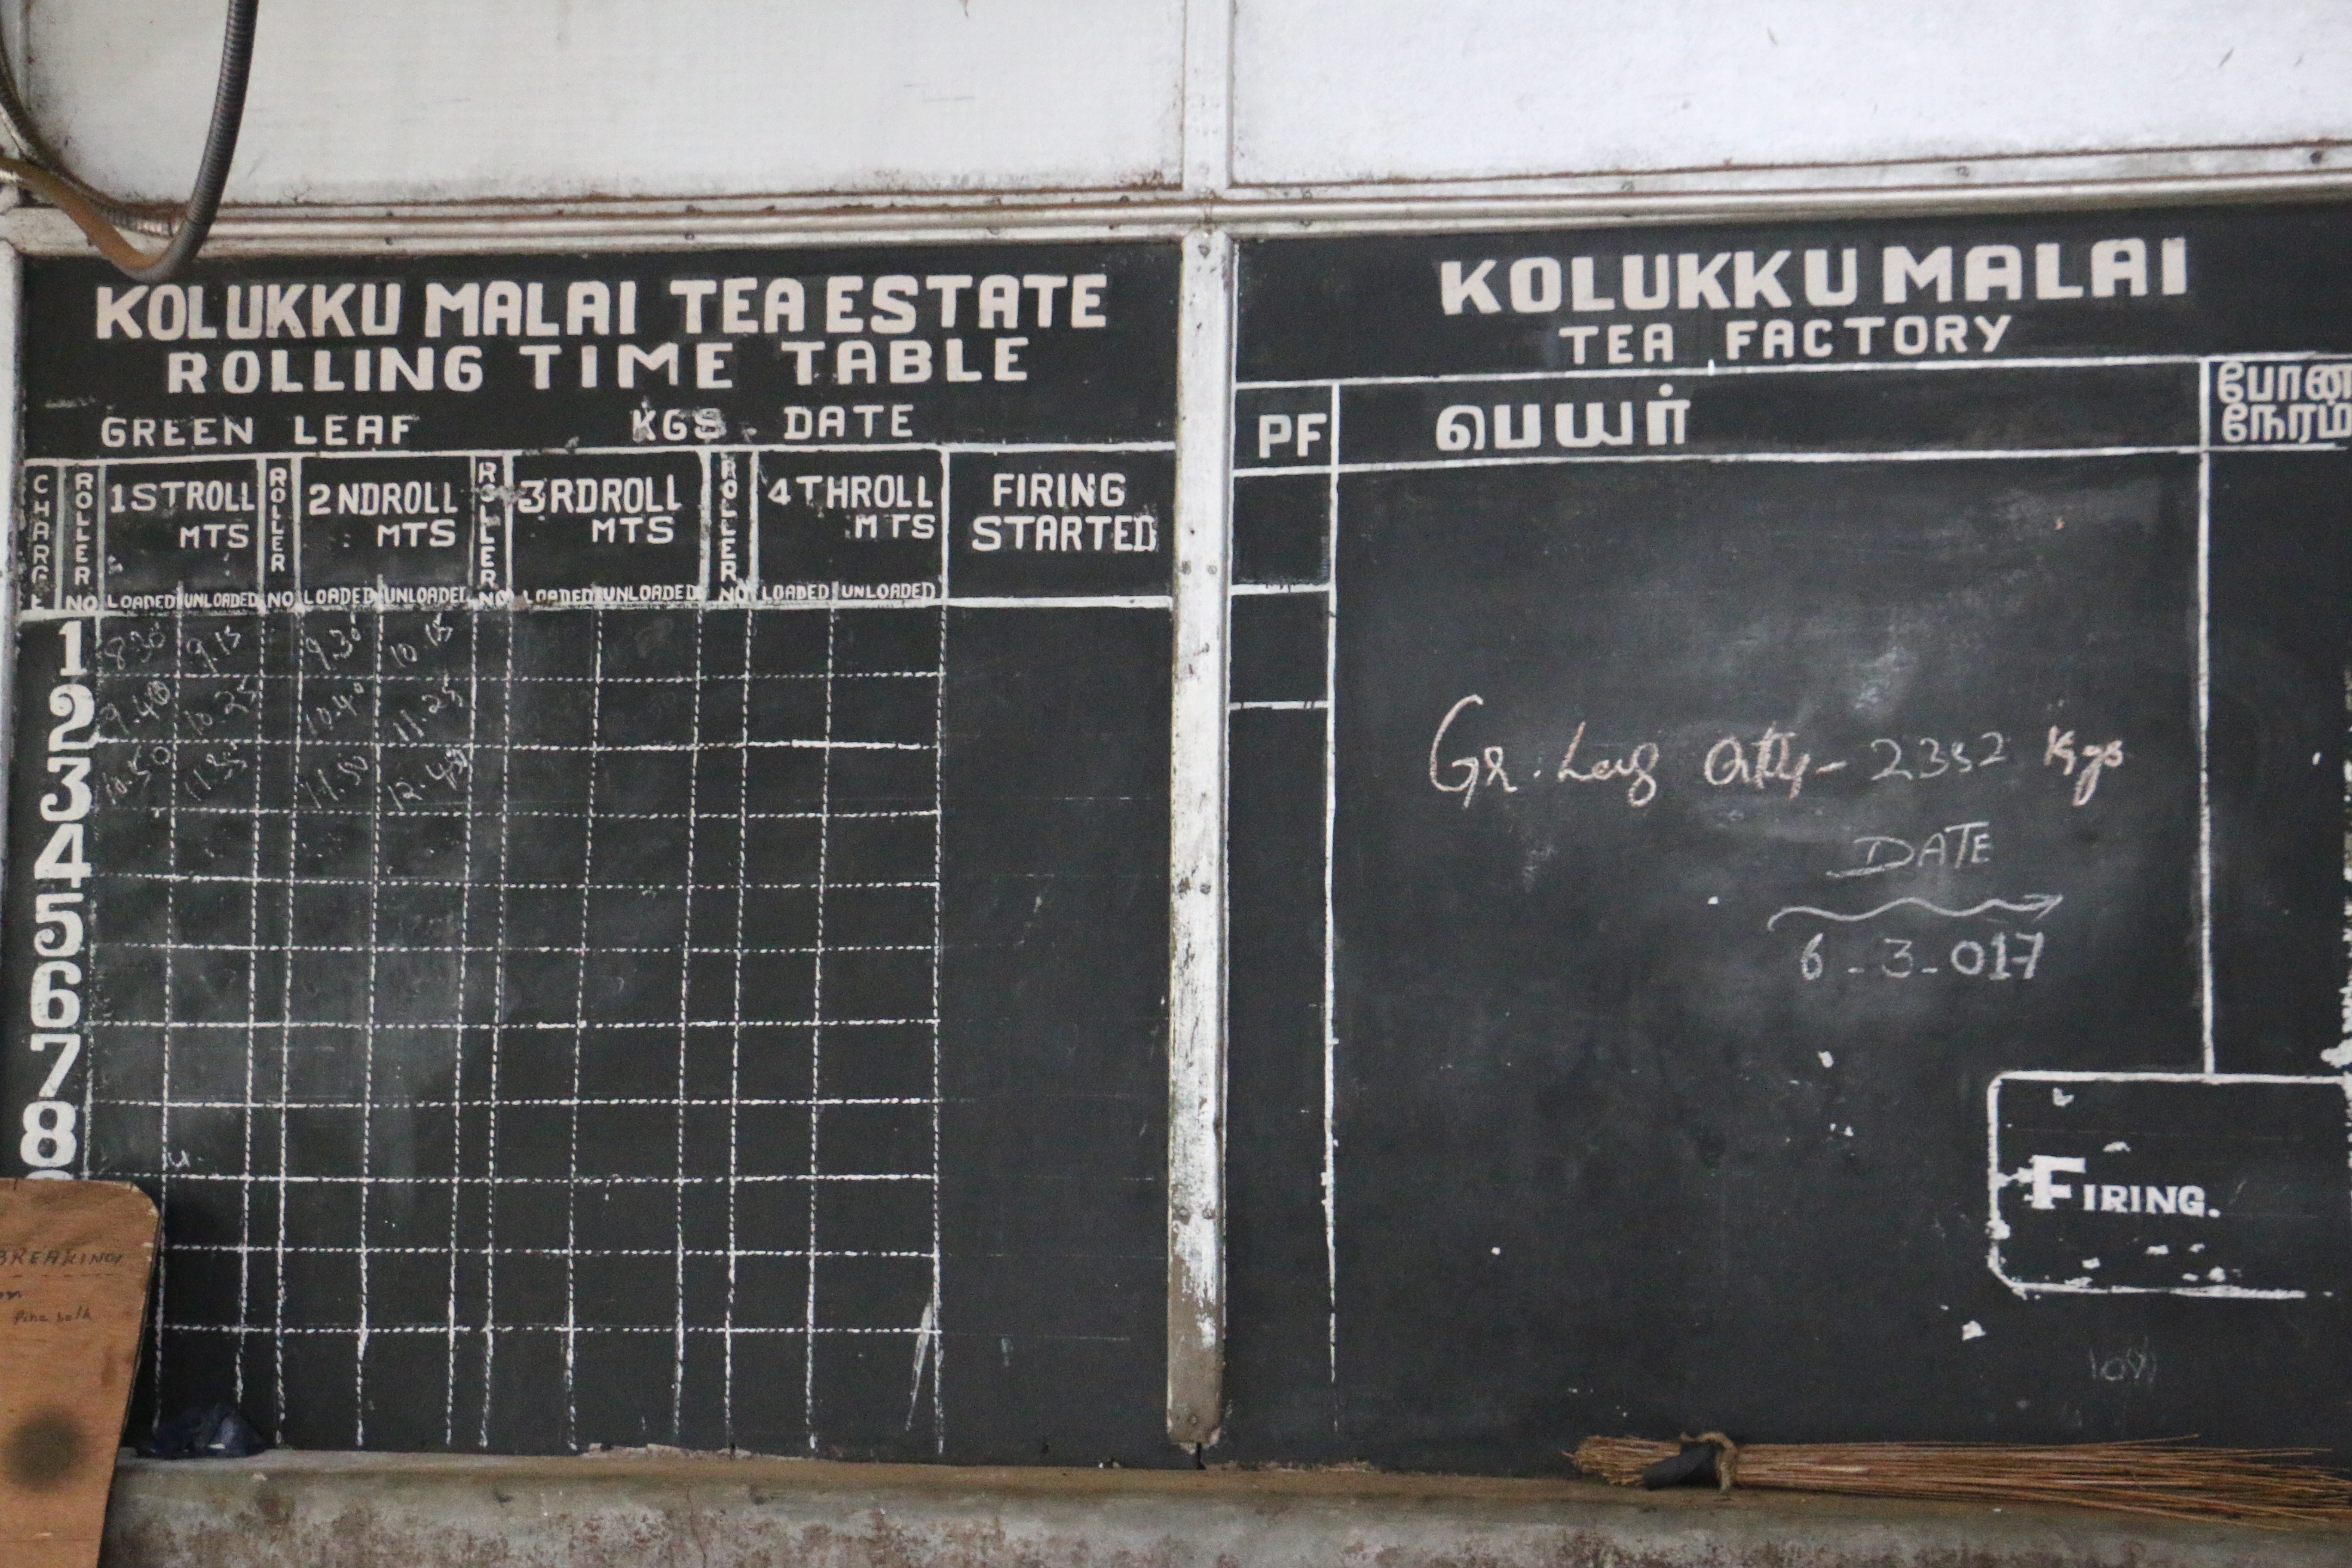 KOLUKKU MALAI TEA ESTATE
ROLLING TIME TABLE
GREEN LEAF KGS DATE
CHARGE ROLLER NO 1ST ROLL MTS LOADED UNLOADED ROLLER NO 2ND ROLL MTS LOADED UNLOADED ROLLER NO 3RD ROLL MTS LOADED UNLOADED ROLLER NO 4TH ROLL MTS LOADED UNLOADED FIRING STARTED
1 8.30 9.15 9.30 10.15
2 9.40 10.25 10.40 11.25
3 10.50 11.35 11.50
4
5
6
7
8
BREAKING
KOLUKKU MALAI
TEA FACTORY
PF பெயர் போன
நேரம்
Gr. Leaf Qtty - 2352 Kgs
DATE
6-3-017
FIRING.